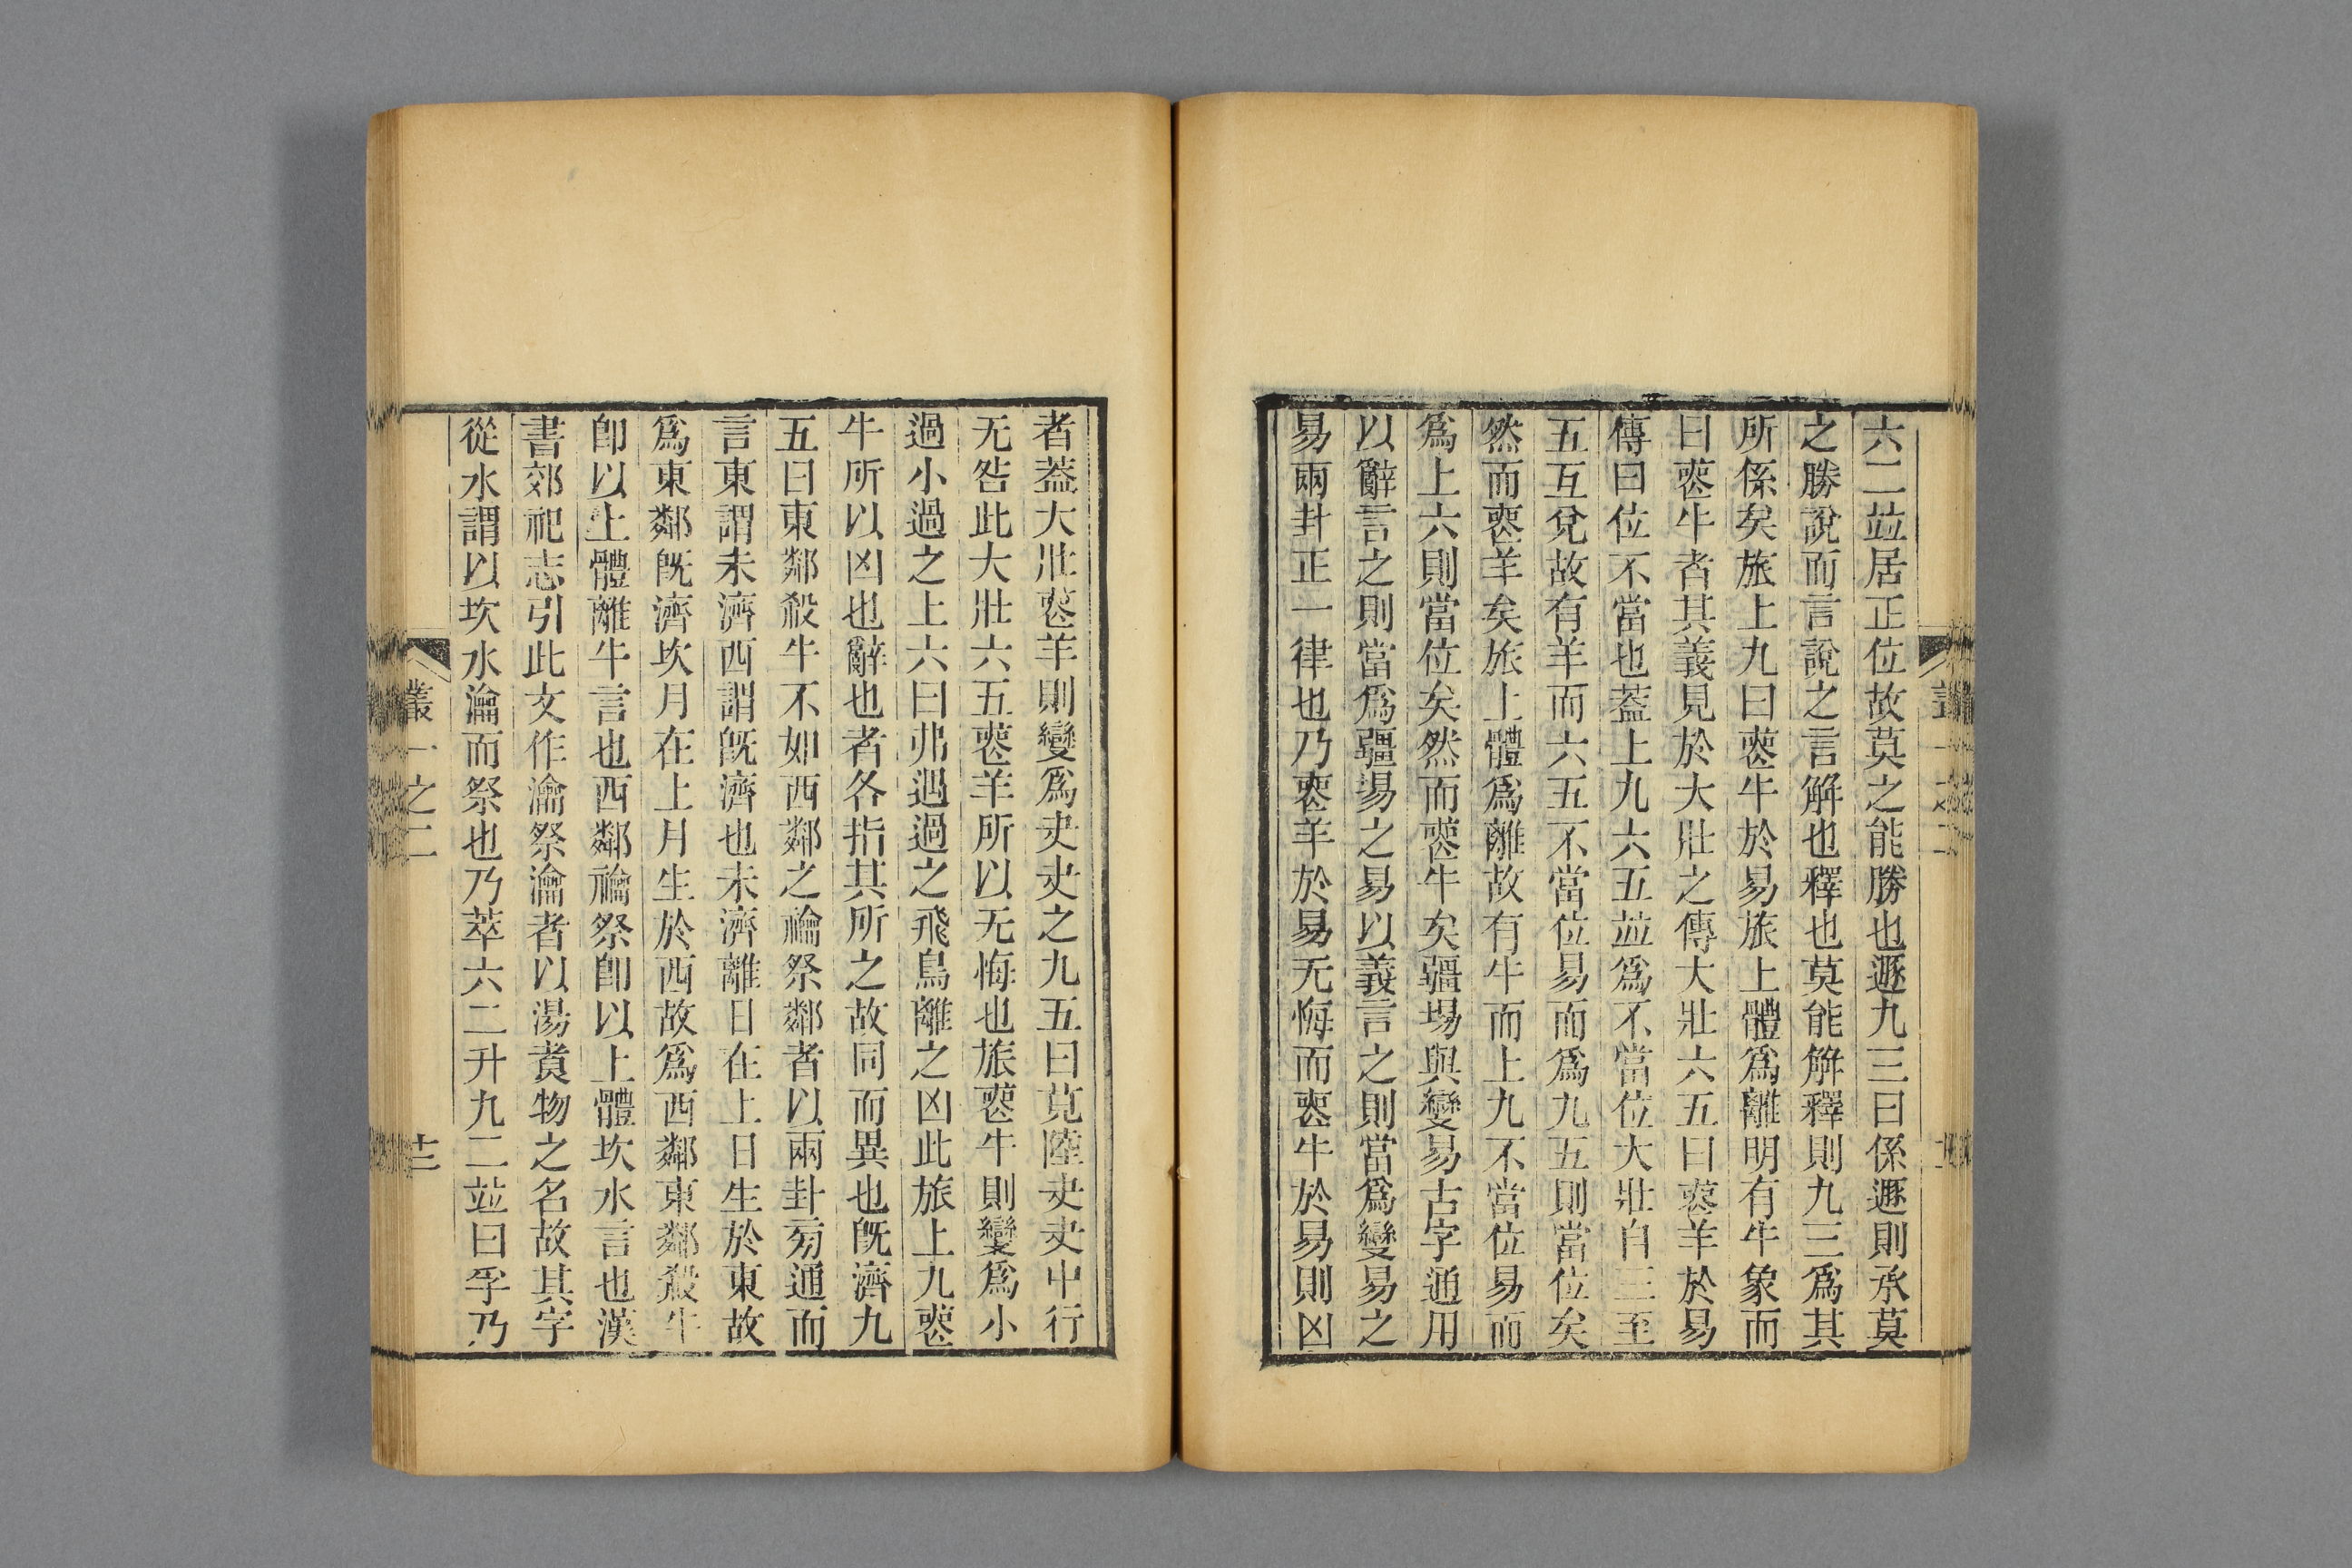 六二竝居正位故莫之能勝也遯九三曰係遯則承莫
之勝說而言說之言解也釋也莫能解釋則九三爲其
所係矣旅上九曰䘮牛於易旅上體爲離明有牛象而
曰䘮牛者其義見於大壯之傳大壯六五曰䘮羊於易
傳曰位不當也葢上九六五竝爲不當位大壯自三至
五互兌故有羊而六五不當位易而爲九五則當位矣
然而䘮羊矣旅上體爲離故有牛而上九不當位易而
爲上六則當位矣然而䘮牛矣疆埸與變易古字通用
以辭言之則當爲疆埸之易以義言之則當爲變易之
易兩卦正一律也乃䘮羊於易无悔而䘮牛於易則凶
者葢大壯䘮羊則變爲夬夬之九五曰莧陸夬夬中行
无咎此大壯六五䘮羊所以无悔也旅䘮牛則變爲小
過小過之上六曰弗遇過之飛鳥離之凶此旅上九䘮
牛所以凶也辭也者各指其所之故同而異也旣濟九
五曰東鄰殺牛不如西鄰之禴祭鄰者以兩卦旁通而
言東謂未濟西謂旣濟也未濟離日在上日生於東故
爲東鄰旣濟坎月在上月生於西故爲西鄰東鄰殺牛
卽以上體離牛言也西鄰禴祭卽以上體坎水言也漢
書郊祀志引此文作瀹祭瀹者以湯煑物之名故其字
從水謂以坎水瀹而祭也乃萃六二升九二竝曰孚乃
叢一之二